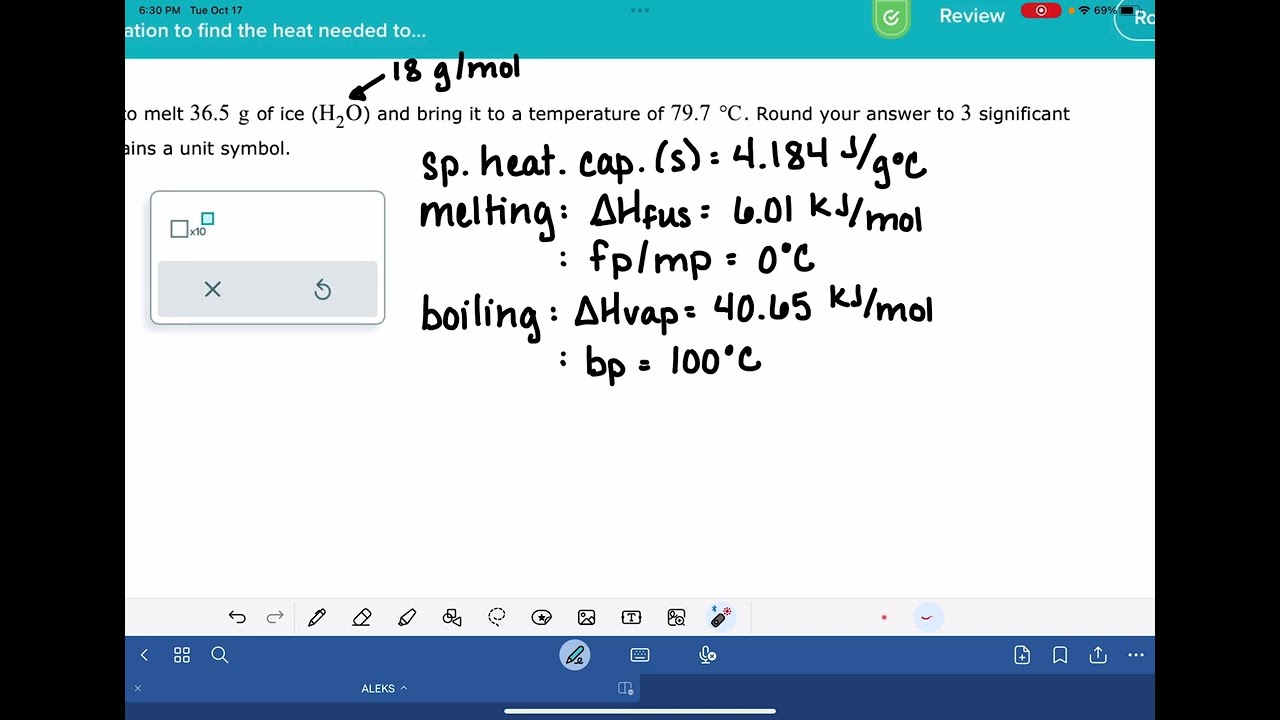 6:30 PM Tue Oct 17
69%
ation to find the heat needed to...
Review
Ro
18 g/mol
to melt 36.5 g of ice (H₂O) and bring it to a temperature of 79.7 °C. Round your answer to 3 significant
ains a unit symbol.
sp. heat. cap. (s) = 4.184 J/g°C
x10
melting : ΔHfus = 6.01 kJ/mol
: fp/mp = 0°C
boiling : ΔHvap = 40.65 kJ/mol
: bp = 100°C
ALEKS